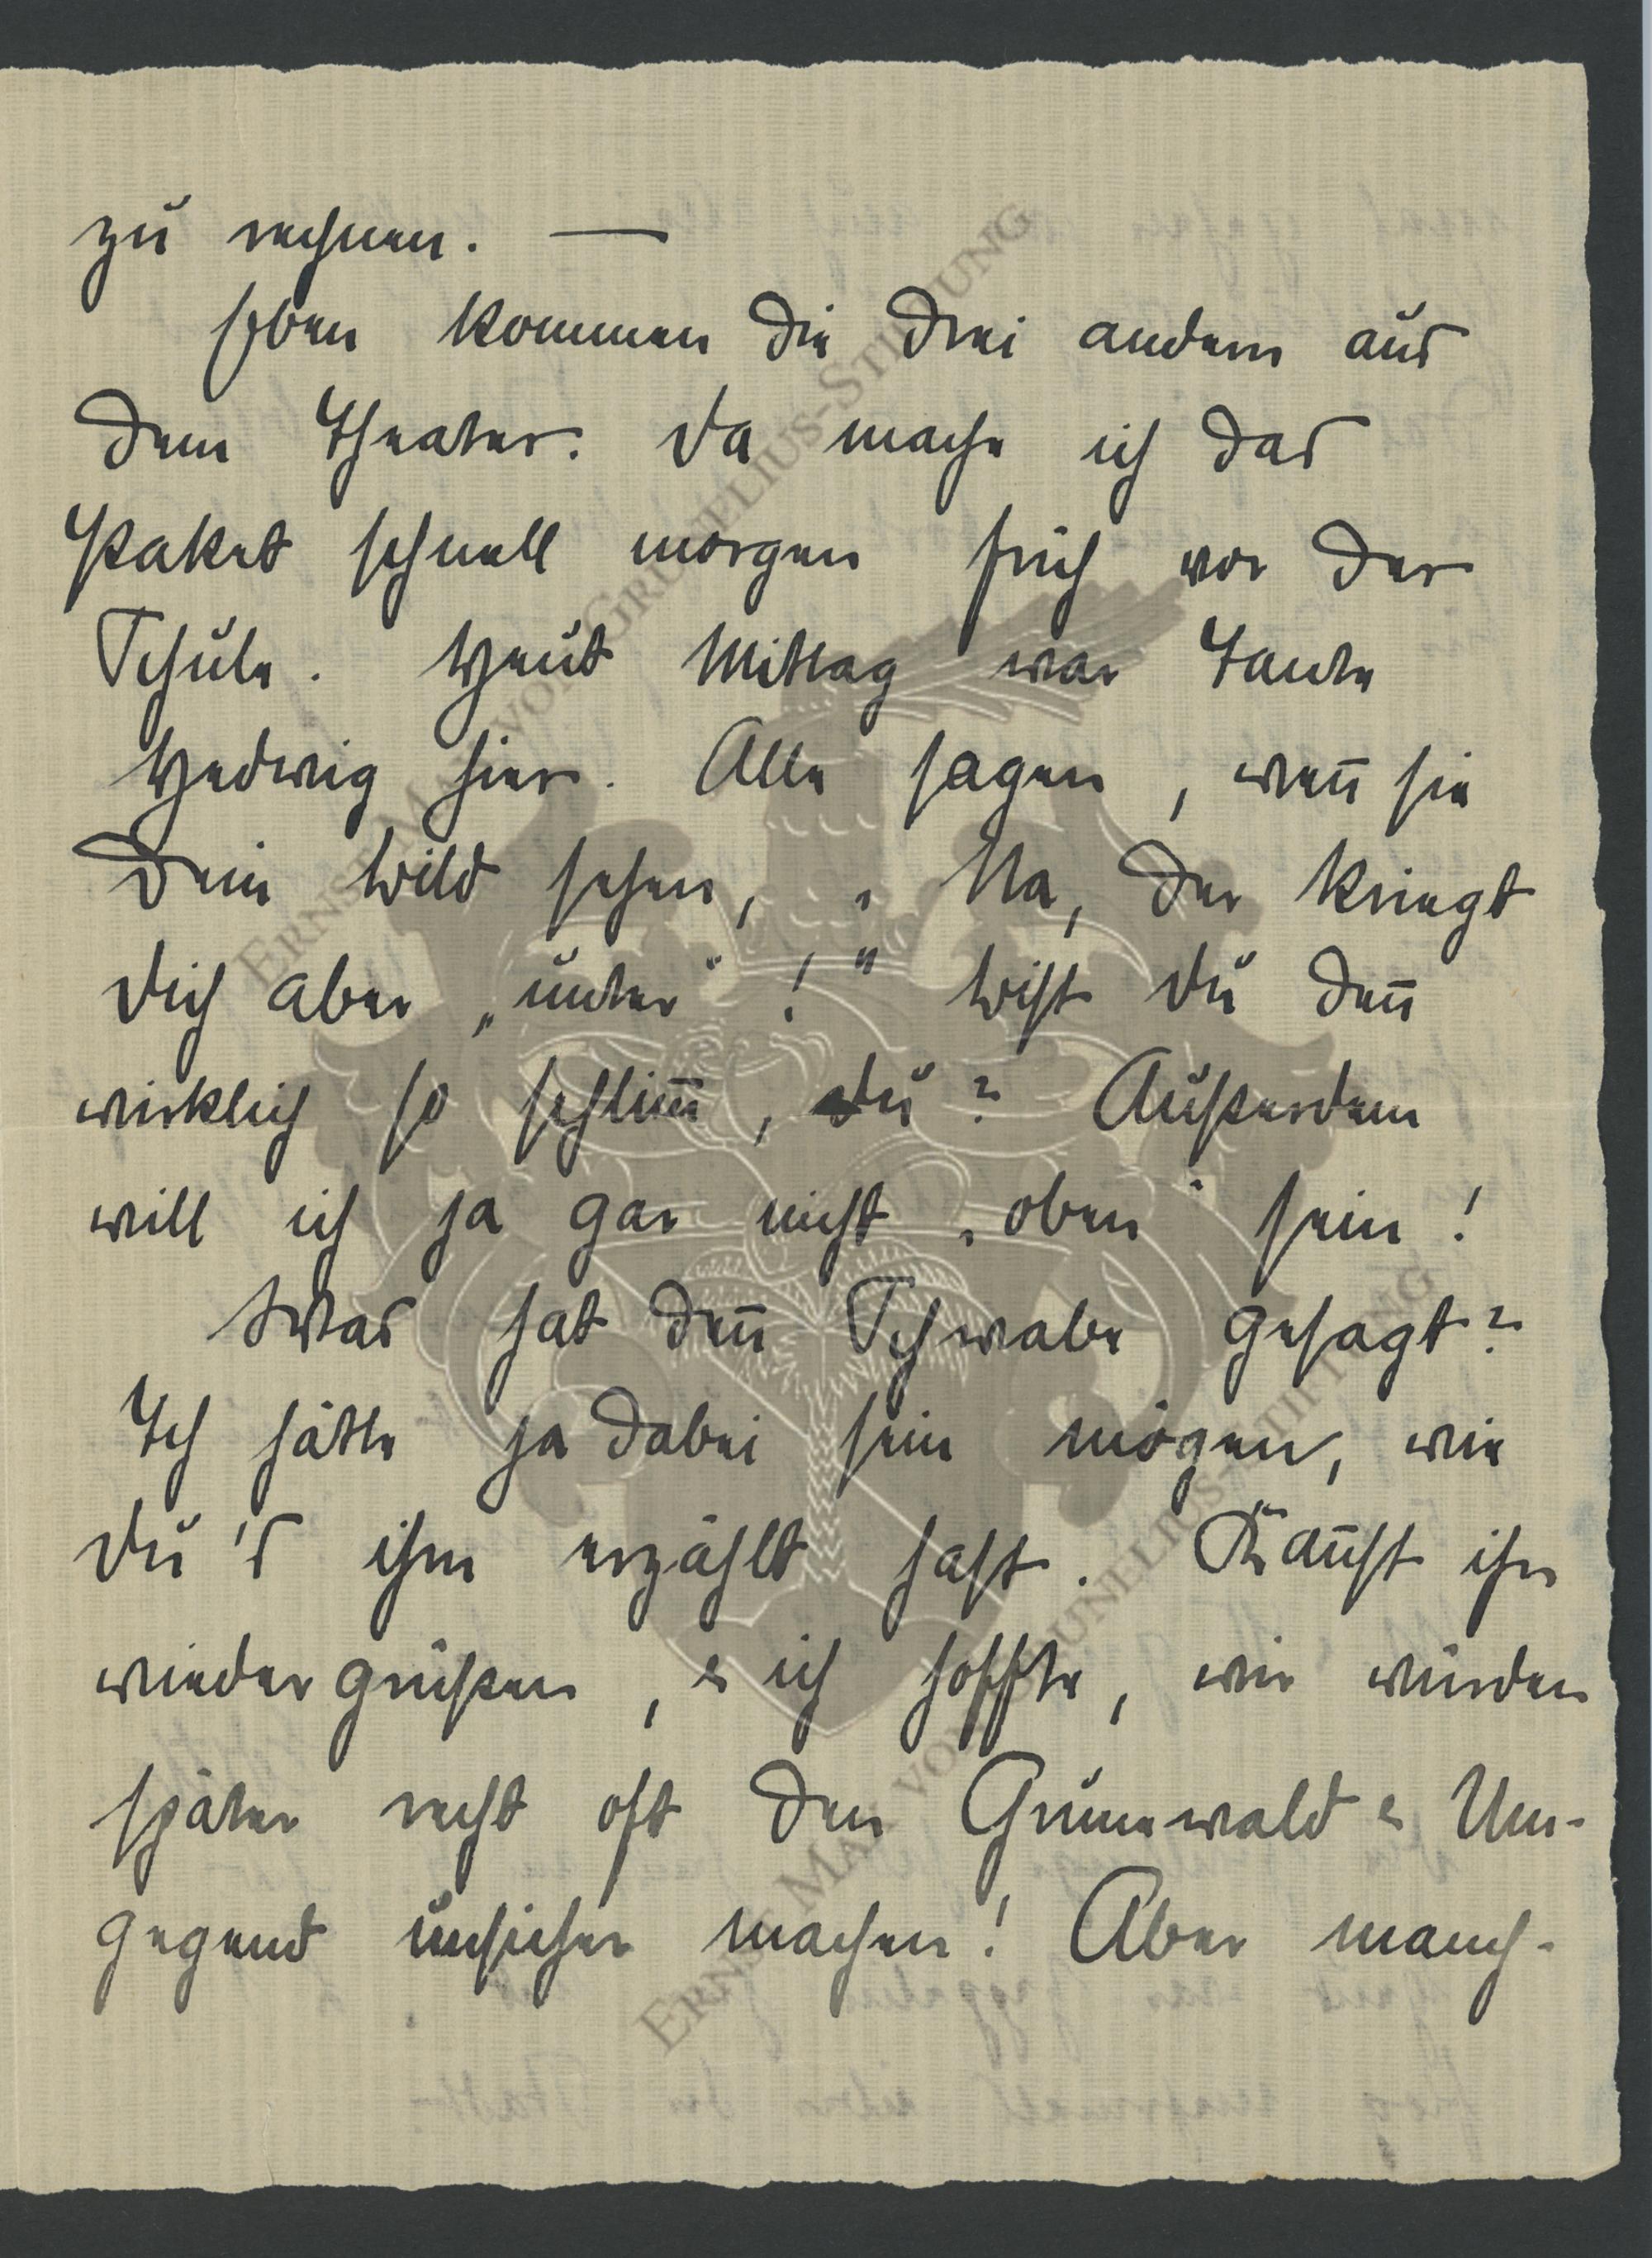 zu rechnen. —
Eben kommen die drei andern aus
dem Theater. Da mache ich das
Paket schnell morgen früh vor der
Schule. Heut Mittag war Tante
Hedwig hier. Alle sagen, wen̄ sie
Dein Bild sehen, „Na, der kriegt
Dich aber „unter“!“ Bist Du den̄
wirklich so schlim̄, Du? Außerdem
will ich ja gar nicht „oben“ sein!
Was hat den̄ Schwabe gesagt?
Ich hätte ja dabei sein mögen, wie
Du's ihm erzählt hast. Kan̄st ihn
wiedergrüßen, & ich hoffte, wir würden
später recht oft den Grunewald & Um-
gegend unsicher machen! Aber manch-
ERNST MAX VON GRUNELIUS-STIFTUNG
ERNST MAX VON GRUNELIUS-STIFTUNG